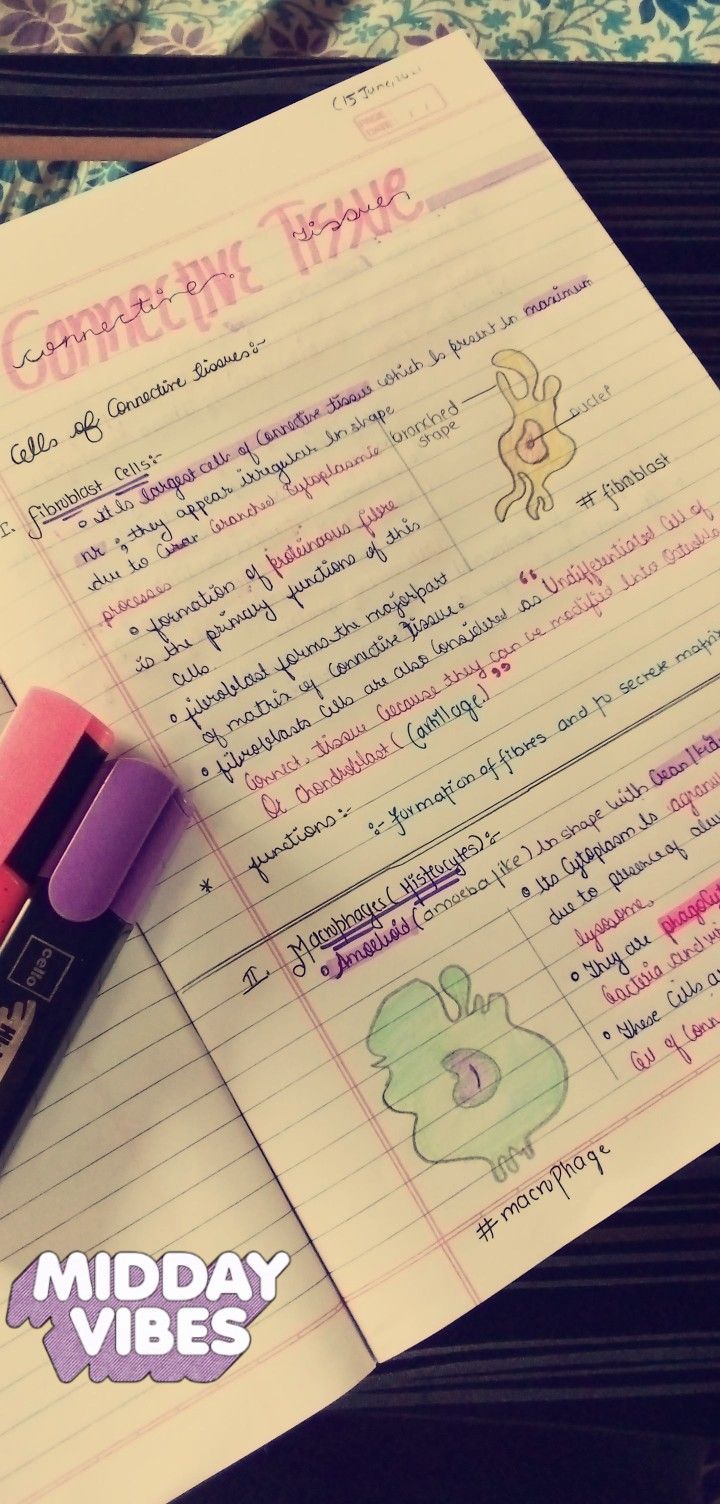 (15 June, 20
PAGE
DATE
Connective Tissue
Connective. tissues
Cells of Connective tissues:-
I. fibroblast Cells:-
• it is largest cell of Connective tissue which is present in maximum
nr ; they appear irregular in shape
due to branched Cytoplasmic
processes
branched
shape
nuclei
#fibroblast
• formation of proteinaous fibre
is the primary functions of this
cells.
• fibroblast forms the major part
of matrix of connective tissue.
• fibroblasts cells are also considered as "Undifferentiated Cell of
Connect. tissue because they can be modified into
Or Chondroblast (Cartilage)"
* functions:-
:- formation of fibres and to secrete matrix
II. Macrophages (Histiocytes):-
• Amoeboid (amoeba like) in shape with bean/
• Its Cytoplasm is
due to presence of
lysosome.
• They are
bacteria and
• These Cells
Cell of
#macrophage
cello
MIDDAY
VIBES